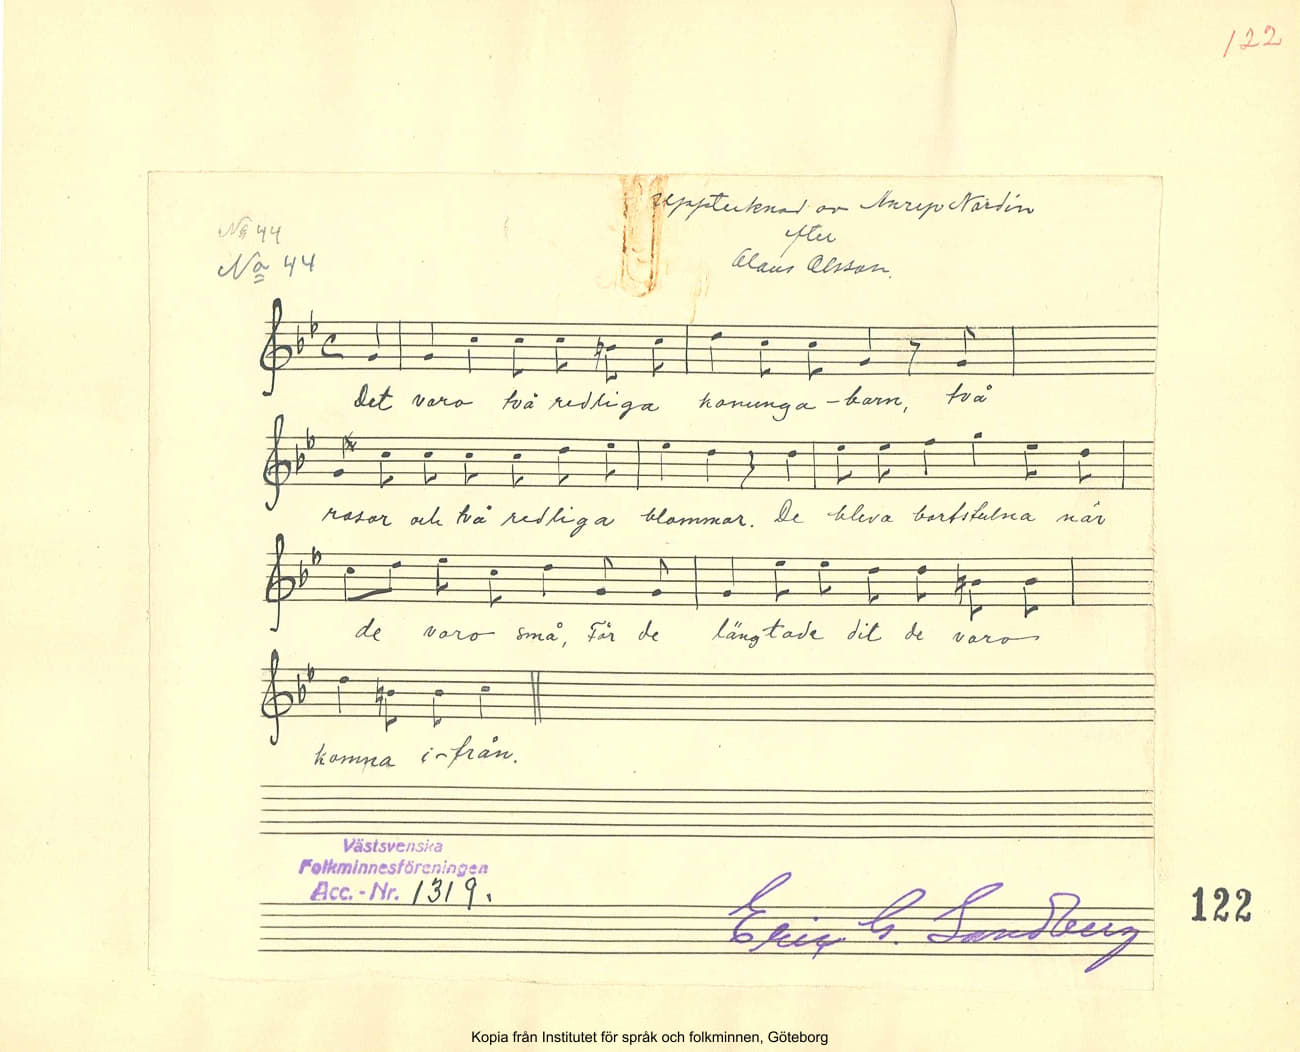 122
Upptecknad av Anrep Nordin
efter
Olaus Olsson.
No 44
No 44
Det voro två redliga konunga-barn, två
rosor och två redliga blommor. De bleva bortstulna när
de voro små, För de längtade dit de voro
komna i-från.
Västsvenska
Folkminnesföreningen
Acc.-Nr. 1319.
Erix G. Sandberg
122
Kopia från Institutet för språk och folkminnen, Göteborg